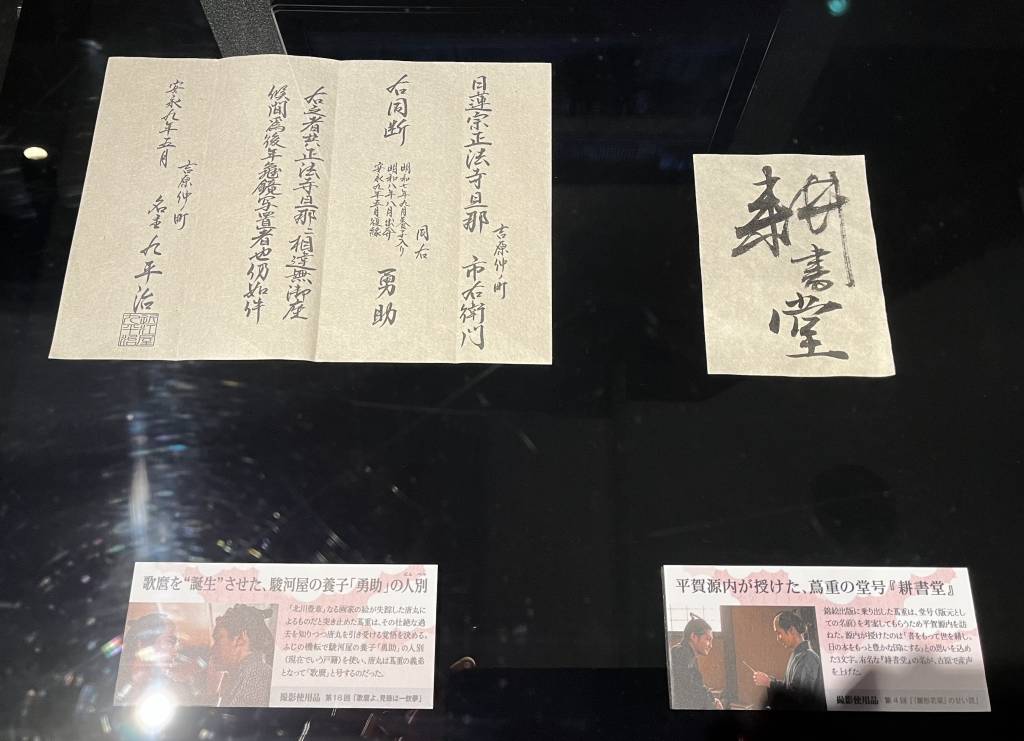 日蓮宗正法寺旦那
吉原仲ノ町
市右衛門
右同断
明和七年九月養子入り
明和八年八月出奔
安永九年五月復縁
同右
勇助
右之者共正法寺旦那ニ相違無御座
候間為後年亀鏡写置者也仍如件
安永九年五月
吉原仲町
名主 九平治
耕書堂
歌麿を“誕生”させた、駿河屋の養子「勇助」の人別
「北川豊章」なる画家の絵が失踪した唐丸に
よるものだと突き止めた蔦重は、その壮絶な過
去を知りつつ唐丸を引き受ける覚悟を決める。
ふじの機転で駿河屋の養子「勇助」の人別
(現在でいう戸籍)を使い、唐丸は蔦重の義弟
となって「歌麿」と号するのだった。
撮影使用品 第18回「歌麿よ、見徳は一炊夢」
平賀源内が授けた、蔦重の堂号『耕書堂』
錦絵出版に乗り出した蔦重は、堂号(版元とし
ての名前)を考案してもらうため平賀源内を訪
ねた。源内が授けたのは「書をもって世を耕し、
日の本をもっと豊かな国にする」との思いを込め
た3文字。有名な『耕書堂』の名が、吉原で産声
を上げた。
撮影使用品 第4回「『雛形若菜』の甘い罠」